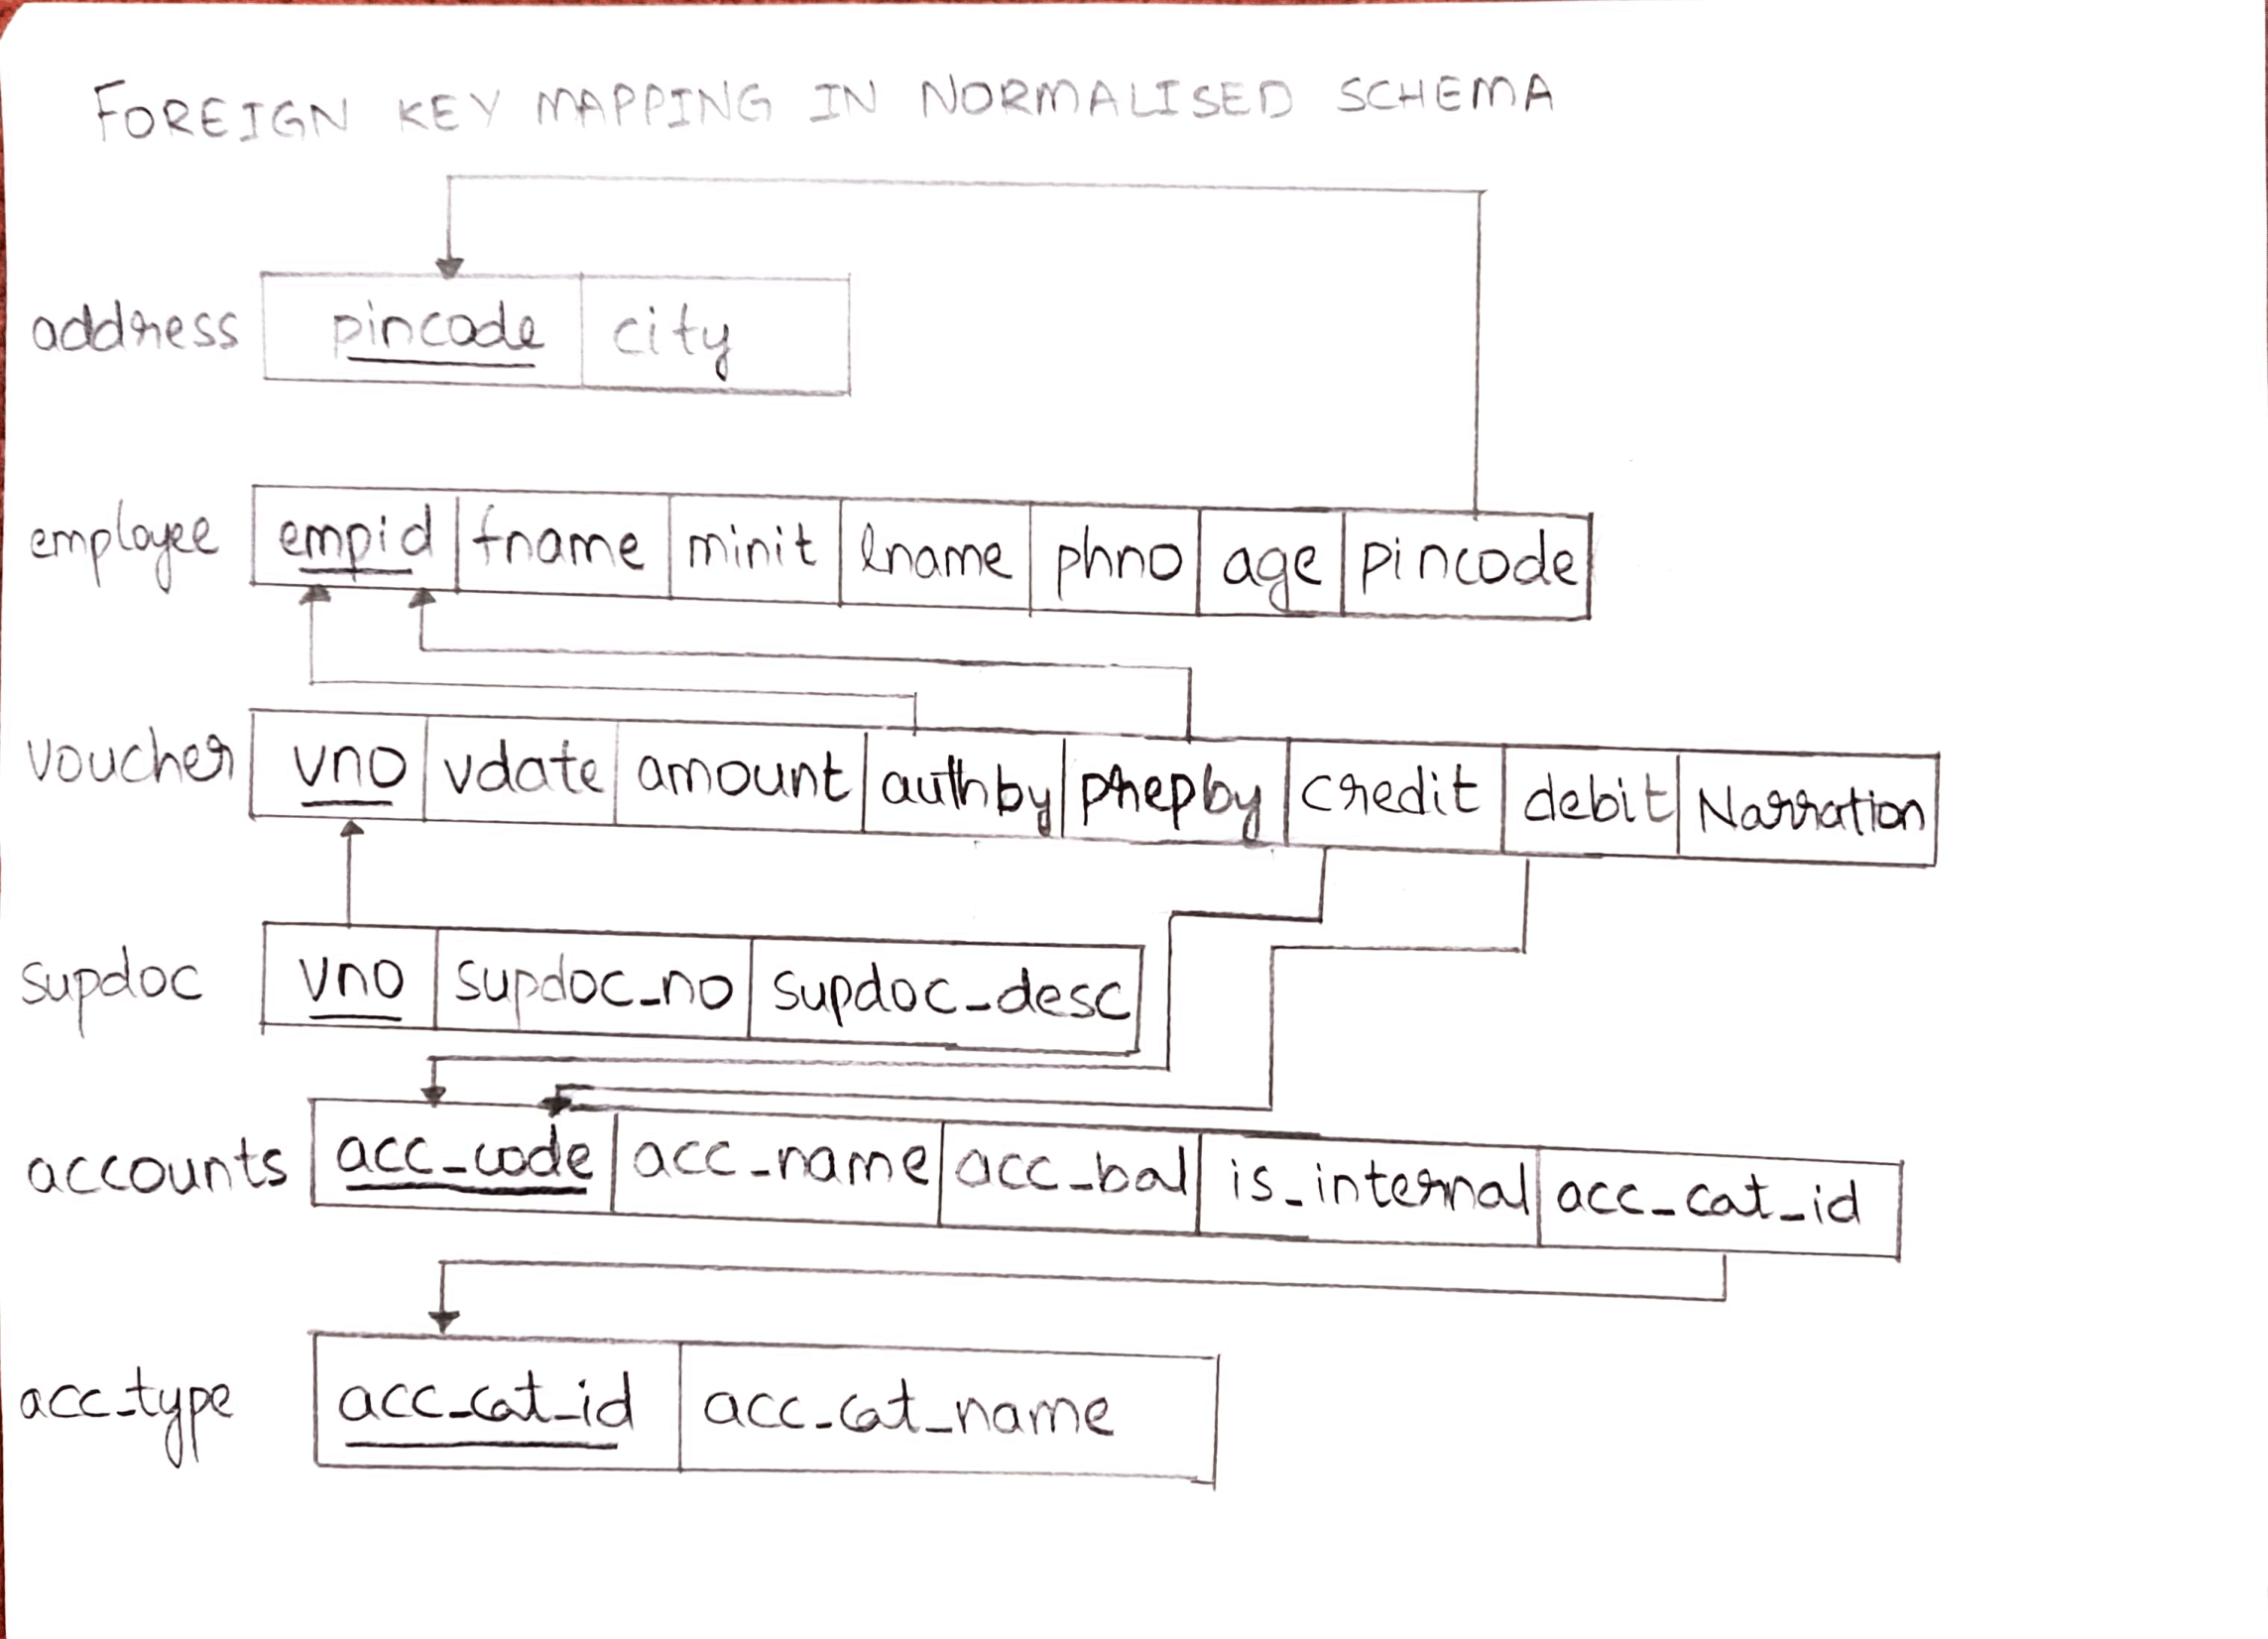 FOREIGN KEY MAPPING IN NORMALISED SCHEMA
address pincode city
employee empid fname minit lname phno age pincode
voucher vno vdate amount authby prepby credit debit Narration
supdoc vno supdoc_no supdoc_desc
accounts acc_code acc_name acc_bal is_internal acc_cat_id
acc_type acc_cat_id acc_cat_name